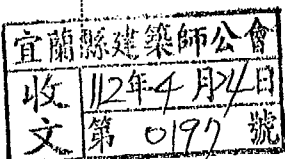 宜蘭縣建築師公會
收文 112年4月24日
第 0197 號